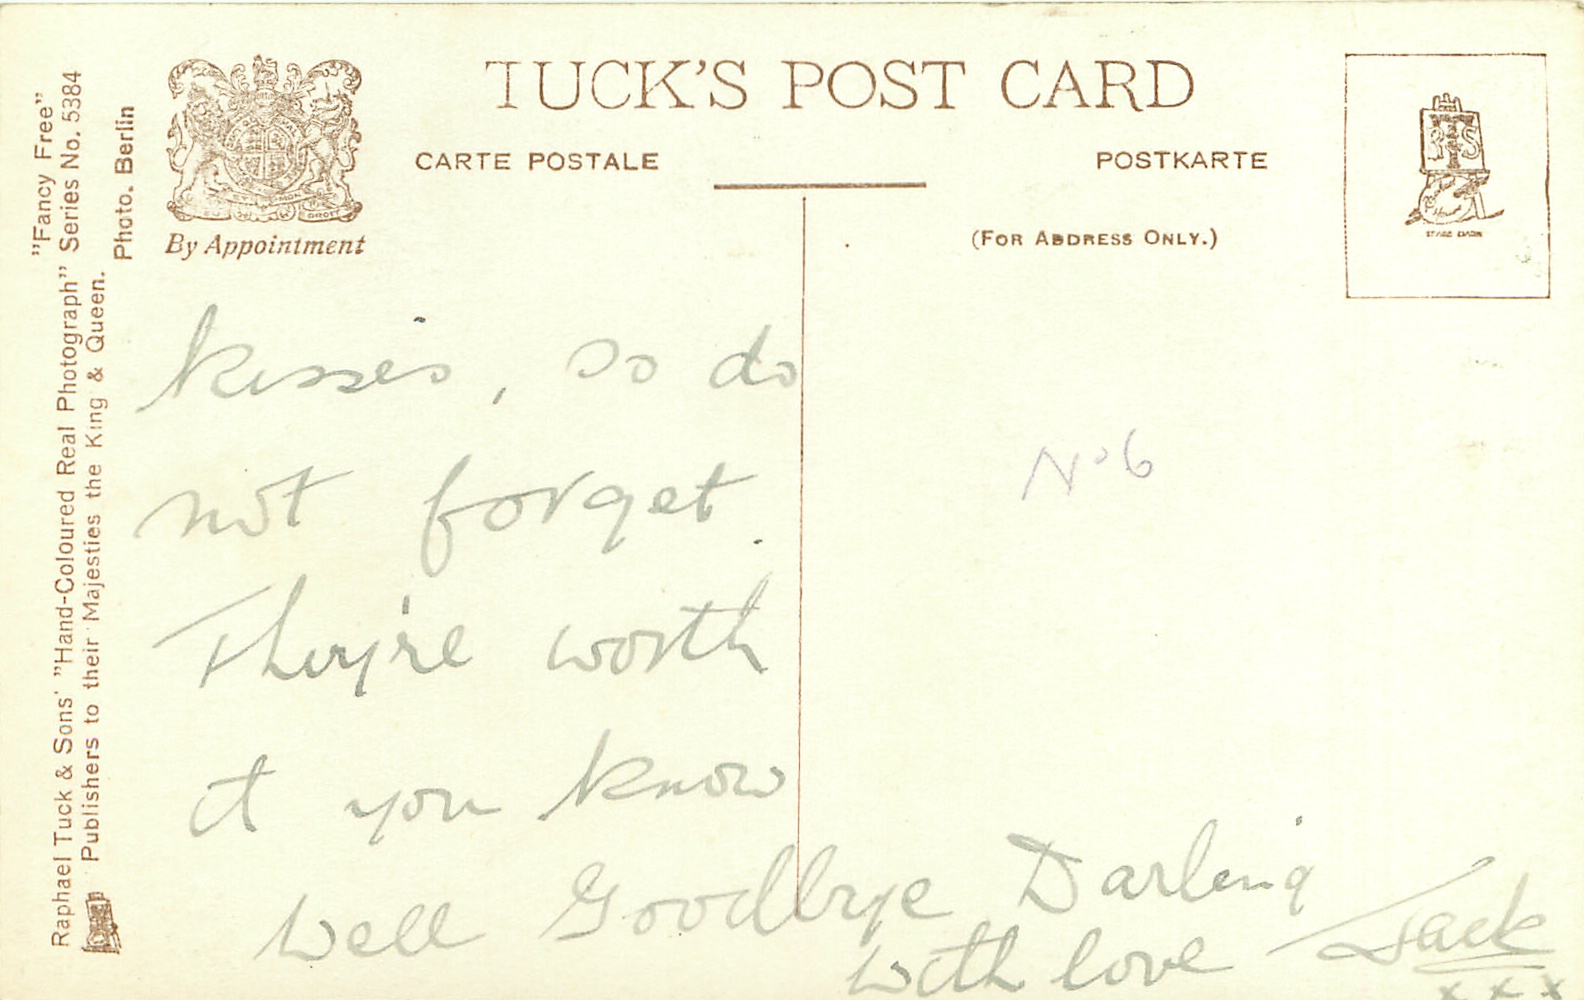 TUCK'S POST CARD
CARTE POSTALE
POSTKARTE
(FOR ADDRESS ONLY.)
By Appointment
"Fancy Free"
Raphael Tuck & Sons' "Hand-Coloured Real Photograph" Series No. 5384
Publishers to their Majesties the King & Queen.
Photo. Berlin
DROIT
R T S
kisses, so do
not forget
They're worth
it you know
well Goodbye Darling
with love Jack
x x x
No 6